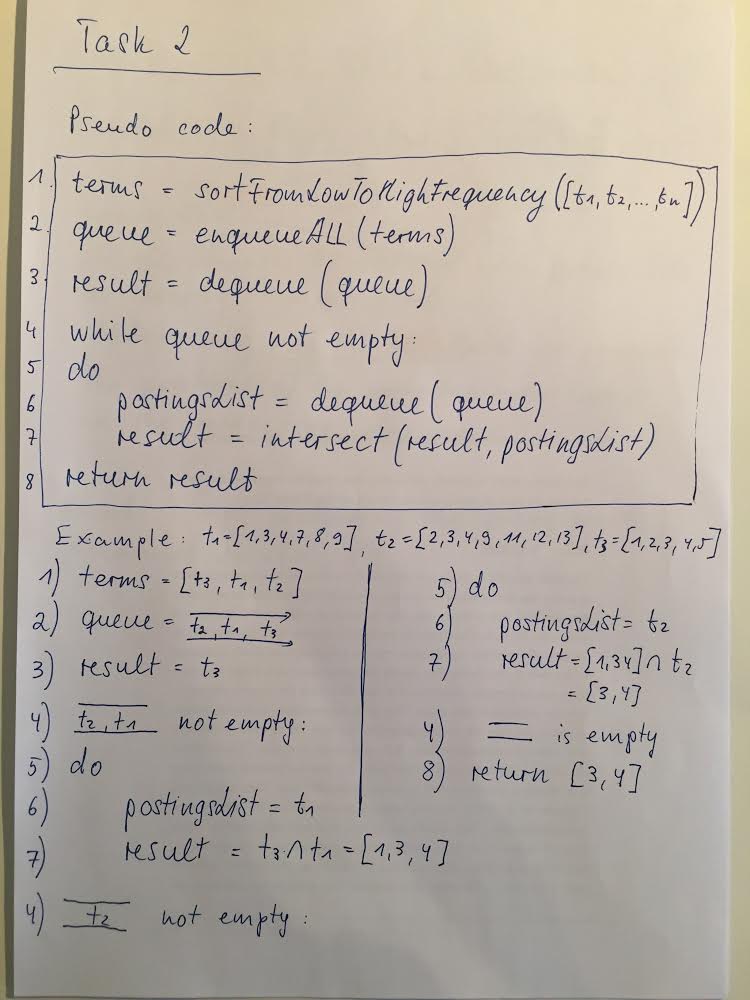 Task 2
Pseudo code:
1. terms = sortFromLowToHighFrequency([t1, t2, ..., tn])
2. queue = enqueueALL(terms)
3. result = dequeue(queue)
4 while queue not empty:
5 do
6 postingsList = dequeue(queue)
7 result = intersect(result, postingsList)
8 return result
Example: t1=[1,3,4,7,8,9], t2=[2,3,4,9,11,12,13], t3=[1,2,3,4,5]
1) terms = [t3, t1, t2]
2) queue = t2, t1, t3
3) result = t3
4) t2, t1 not empty:
5) do
6) postingsList = t1
7) result = t3 ∩ t1 = [1,3,4]
4) t2 not empty:
5) do
6) postingsList = t2
7) result = [1,34] ∩ t2
= [3,4]
4) is empty
8) return [3,4]